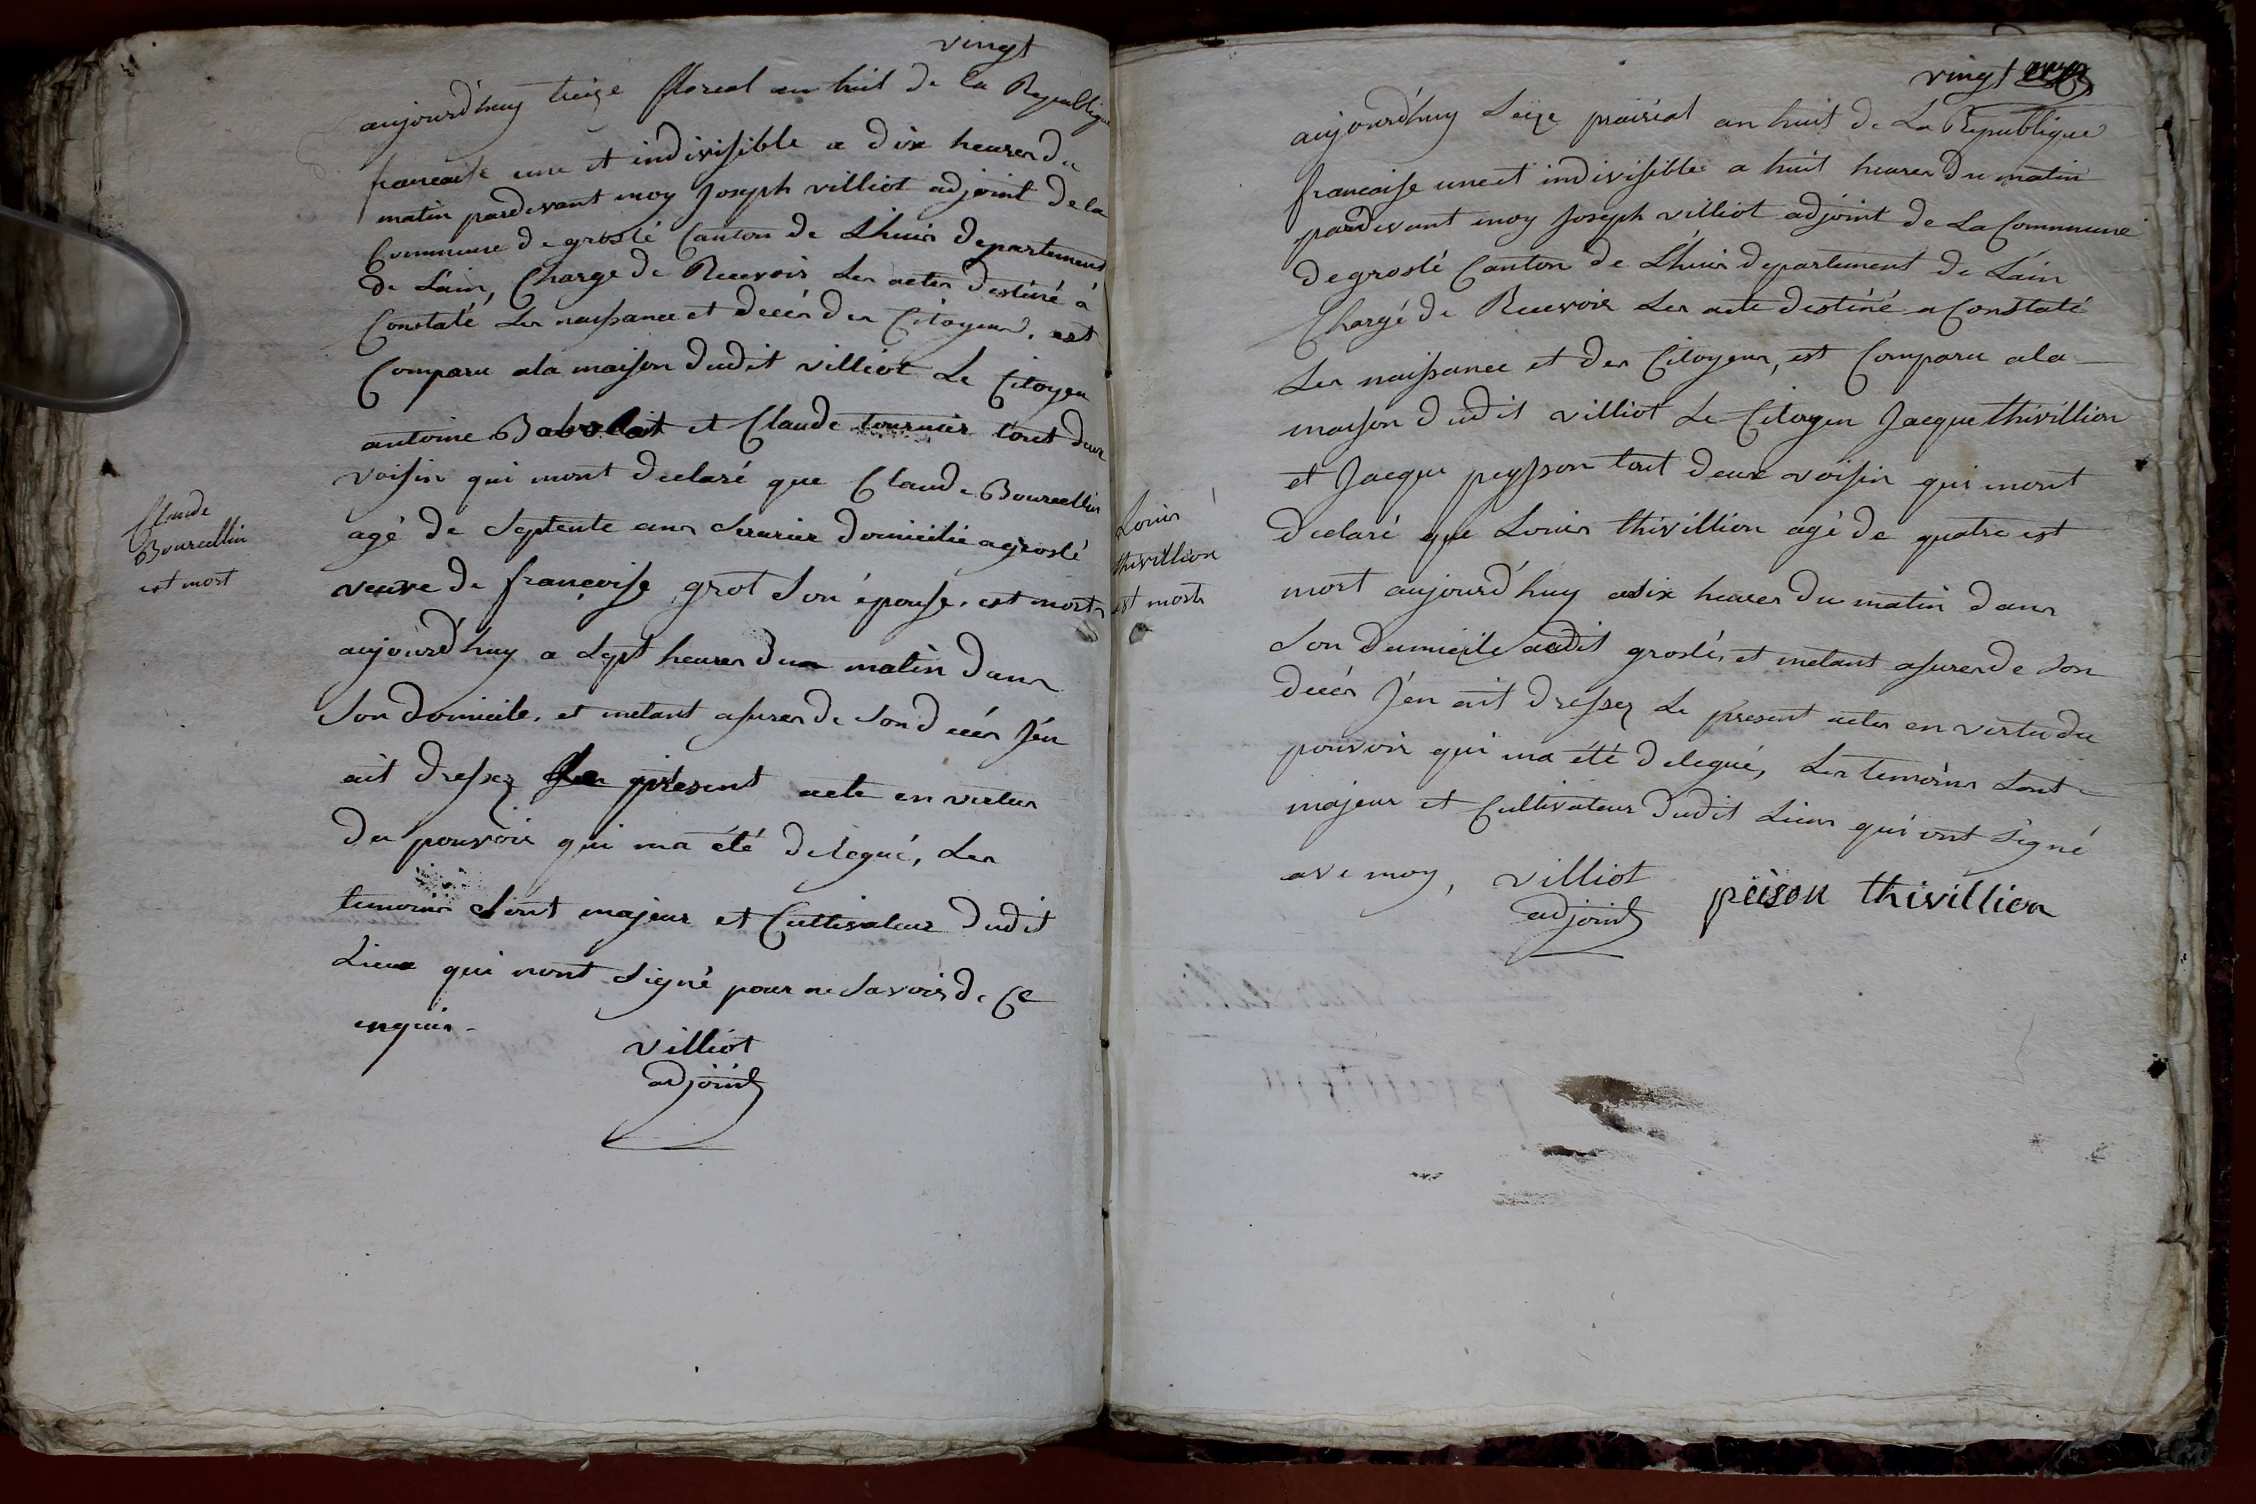 vingt
aujourd'huy treize floreal an huit de la Republique
francaise une et indivisible a dix heures du
matin pardevant moy Joseph villiot adjoint de la
Commune de groslé Canton de Lhuis departement
de Lain, Chargé de Recevoir Les actes destiné à
Constaté Les naissance et decés des Citoyens, est
Comparu ala maison dudit villiot Le Citoyen
antoine et Claude tournier tout deux
voisin qui mont declaré que Claude Bourcellin
agé de Septente ans Serurier domicilié a groslé
veuve de françoise grot Son épouse, est morts
aujourd'huy a Sept heures du matin dans
Son domicile, et metant asures de Son decés J'en
ait dressez Le présent acte en vertus
du pouvoir qui ma été delegué, Les
temoins Sont majeur et Cultivateur dudit
Lieux qui nont Signé pour ne Savoir de Ce
enquis.
villiot
adjoint
Claude
Bourcellin
est mort
vingt
aujourd'huy Seize prairéal an huit de La Republique
francaise une et indivisible a huit heures du matin
pardevant moy Joseph villiot adjoint de La Commune
de groslé Canton de Lhuis departement de Lain
Chargé de Recevoir Les acte destiné a Constaté
Les naissance et des Citoyens, est Comparu ala
maison dudit villiot Le Citoyen Jacque thivillion
et Jacque peysson tout deux voisin qui mont
declaré que Louis thivillion agé de quatre est
mort aujourd'huy a Six heures du matin dans
Son domicile audit groslé, et metant asures de Son
decés J'en ait dressez Le present actes en vertu du
pouvoir qui ma été delegué, Les temoins Sont
majeur et Cultivateur dudit Lieux qui ont Signé
ave moy, villiot
adjoint
pëison thivillion
Louis
thivillion
est morts